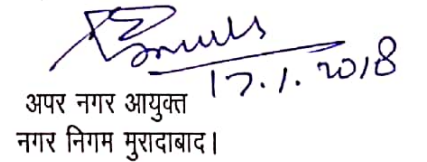 17.1.2018
अपर नगर आयुक्त
नगर निगम मुरादाबाद।